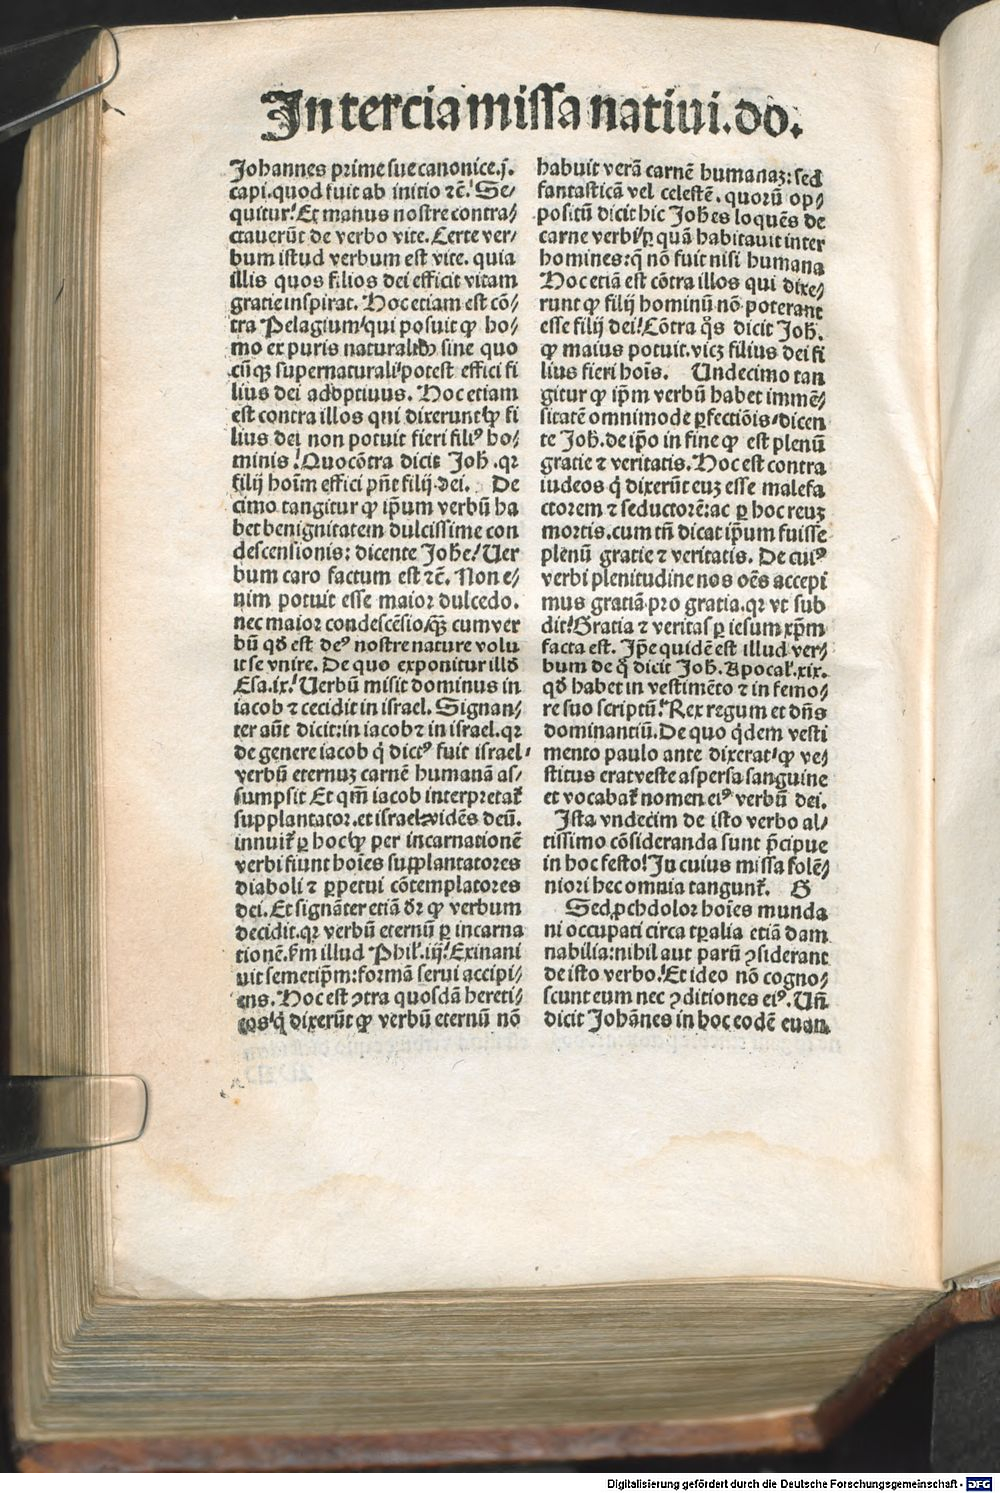 In tercia missa natiui. do.
Johannes prime sue canonice .j.
capi. quod fuit ab initio ⁊c̄. Se/
quitur! Et manus nostre contra/
ctauerūt de verbo vite. Certe ver/
bum istud verbum est vite. quia
illis quos filios dei efficit vitam
gratie inspirat. Hoc etiam est cō/
tra Pelagium/ qui posuit ꝙ ho/
mo ex puris naturalibꝫ sine quo
cūqꝫ supernaturali/ potest effici fi
lius dei adoptiuus. Hoc etiam
est contra illos qui dixerunt ꝙ fi
lius dei non potuit fieri filiꝰ ho/
minis! Quo cōtra dicit Joh̄. qꝛ
filij hoīm effici pn̄t filij dei. De
cimo tangitur ꝙ ip̄um verbū ha
bet benignitatem dulcissime con
descensionis: dicente Joh̄e! Uer
bum caro factum est ⁊c̄. Non e/
nim potuit esse maior dulcedo.
nec maior condescēsio/ qꝫ cum ver
bū qd̄ est deꝰ nostre nature volu
it se vnire. De quo exponitur illd̄
Esa. ix.! Uerbū misit dominus in
iacob ⁊ cecidit in israel. Signan/
ter aūt dicit: in iacob ⁊ in israel. qꝛ
de genere iacob q̇ dictꝰ fuit israel/
verbū eternuꝫ carnē humanā as/
sumpsit Et qm̄ iacob interpretat᷑
supplantator. et israel videns deū.
innuit᷑ ꝑ hoc ꝙ per incarnationē
verbi fiunt hoīes supplantatores
diaboli ⁊ ꝑpetui cōtemplatores
dei. Et signāter etiā dr̄ ꝙ verbum
cecidit. qꝛ verbū eternū ꝑ incarna
tionē. ẜm illud Phil̓. iij.! Exinani
uit semetip̄m: formā serui accipi/
ens. Hoc est ꝯtra quosdā hereti/
cos/ q̇ dixerūt ꝙ verbū eternū nō
habuit verā carnē humanaꝫ: sed
fantasticā vel celestē. quorū op/
positū dicit hic Joh̄es loquēs de
carne verbi/ ꝑ quā habitauit inter
homines: q̄ nō fuit nisi humana
Hoc etiā est cōtra illos qui dixe/
runt ꝙ filij hominū nō poterant
esse filij dei! Cōtra q̊s dicit Joh̄.
ꝙ maius potuit. vicꝫ filius dei fi
lius fieri hoīs. Undecimo tan
gitur ꝙ ip̄m verbū habet immē/
sitatē omnimode ꝑfectiōis/ dicen
te Joh̄. de ip̄o in fine ꝙ est plenū
gratie ⁊ veritatis. Hoc est contra
iudeos q̇ dixerūt euꝫ esse malefa
ctorem ⁊ seductorē: ac ꝑ hoc reuꝫ
mortis. cum tn̄ dicat ip̄um fuisse
plenū gratie ⁊ veritatis. De cuiꝰ
verbi plenitudine nos oēs accepi
mus gratiā pro gratia. qꝛ vt sub
dit! Gratia ⁊ veritas ꝑ iesum xp̄m
facta est. Ip̄e quidē est illud ver/
bum de q̊ dicit Joh̄. Apocal̓. xix.
qd̄ habet in vestimēto ⁊ in femo/
re suo scriptū! Rex regum et dn̄s
dominantiū. De quo q̇dem vesti
mento paulo ante dixerat/ ꝙ ve/
stitus erat veste aspersa sanguine
et vocabat᷑ nomen eiꝰ verbū dei.
Ista vndecim de isto verbo al/
tissimo cōsideranda sunt p̄cipue
in hoc festo! In cuius missa solē/
niori hec omnia tangunt᷑. G
Sed ꝓch dolor hoīes munda
ni occupati circa tꝑalia etiā dam
nabilia: nihil aut parū ꝯsiderant
de isto verbo! Et ideo nō cogno/
scunt eum nec ꝯditiones eiꝰ. Un̄
dicit Johānes in hoc eodē euan
Digitalisierung gefördert durch die Deutsche Forschungsgemeinschaft - DFG